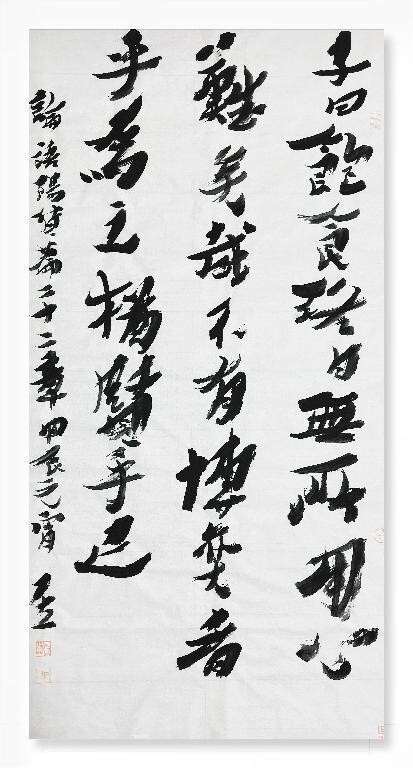 子曰飽食終日無所用心
難矣哉不有博弈者
乎為之猶賢乎已
論語陽貨篇二十二章甲辰元宵